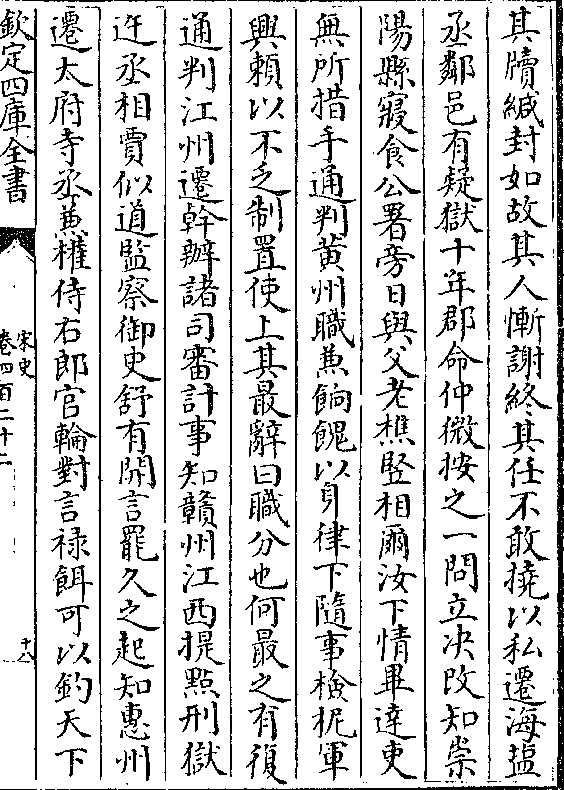 其牘緘封如故其人慚謝終其任不敢撓以私遷海鹽
丞鄰邑有疑獄十年郡命仲微按之一問立決改知崇
陽縣寢食公署旁日與父老樵豎相爾汝下情畢達吏
無所措手通判黄州職兼餉餽以身律下隨事檢柅軍
興賴以不乏制置使上其最辭曰職分也何最之有復
通判江州遷幹辦諸司審計事知贛州江西提點刑獄
迕丞相賈似道監察御史舒有開言罷久之起知惠州
遷太府寺丞兼權侍右郎官輪對言禄餌可以釣天下
欽定四庫全書
宋史
卷四百二十二
十六